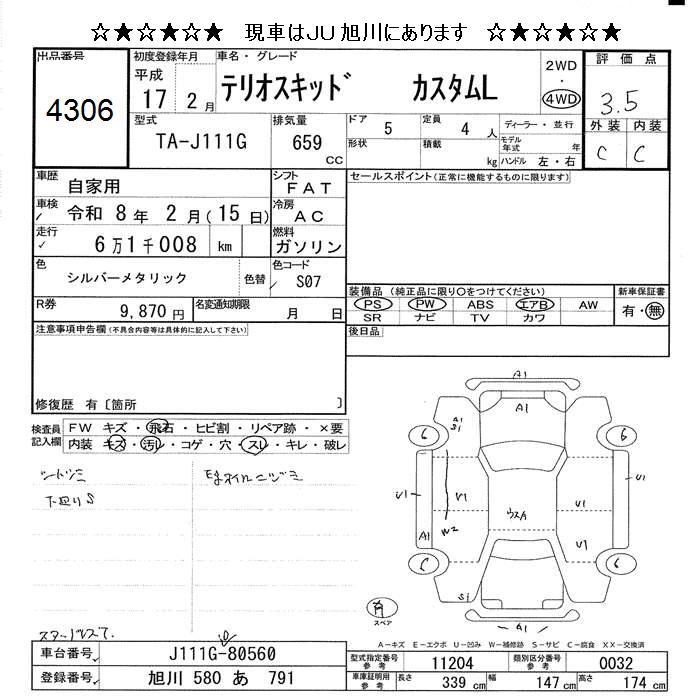 ☆★☆★☆★☆ 現車はJU旭川にあります ☆★☆★☆★☆
出品番号
4306
初度登録年月
平成
17 2月
車名・グレード
テリオスキッド カスタムL
2WD
・
4WD
評価点
3.5
外装 内装
C C
型式
TA-J111G
排気量
659
CC
ドア 5
定員 4 人
ディーラー・並行
形状
積載 kg
モデル年式 年
ハンドル 左・右
車歴
自家用
シフト
FAT
セールスポイント(正常に機能するものに限ります)
車検
令和 8年 2月(15日)
冷房
AC
走行
6万1千008 km
燃料
ガソリン
色
シルバーメタリック
色替
色コード
S07
装備品(純正品に限り〇をつけてください)
新車保証書
PS PW ABS エアB AW
有・無
SR ナビ TV カワ
R券
9,870円
名変通知期限
月 日
後日品
注意事項申告欄(不具合内容等は具体的に記入して下さい)
修復歴 有〔箇所 〕
検査員
記入欄
FW キズ・飛石・ヒビ割・リペア跡・×要
内装 キズ・汚レ・コゲ・穴・スレ・キレ・破レ
シートシミ
下廻りS
A1
A1
A1
S1
6
6
U1
U1
U1
U1
U1
W2
A1
C
6
S1
A1
スペア
A-キズ E-エクボ U-凹み W-補修跡 S-サビ C-腐食 XX-交換済
車台番号
J111G-80560
登録番号
旭川 580 あ 791
型式指定番号
参考
11204
類別区分番号
参考
0032
車庫証明用
参考
長さ 339 cm
幅 147 cm
高さ 174 cm